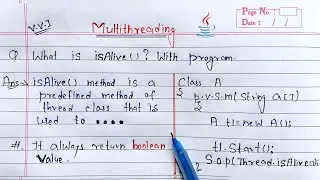 V.V.I
Multithreading
Java
Page No. :
Date : / /
Q. What is isAlive()? With program.
Ans:- isAlive() method is a
predefined method of
thread class that is
used to ....
#. It always return boolean
Value.
Class A
{ p.v.s.m(String a[])
{
A t1=new A();
t1.Start();
S.o.p(Thread.isAlive